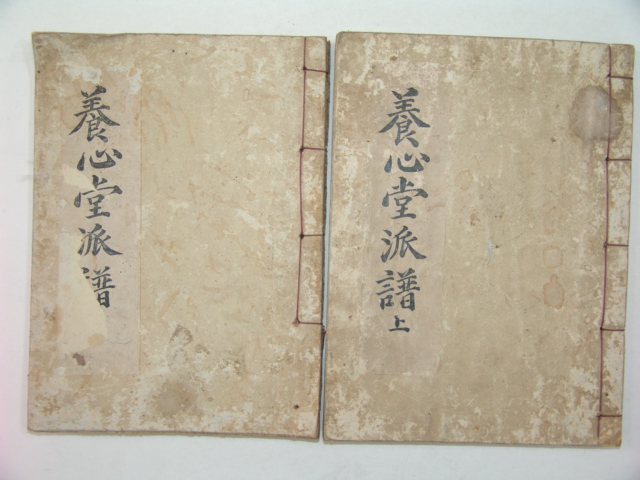 養心堂派譜
養心堂派譜 上